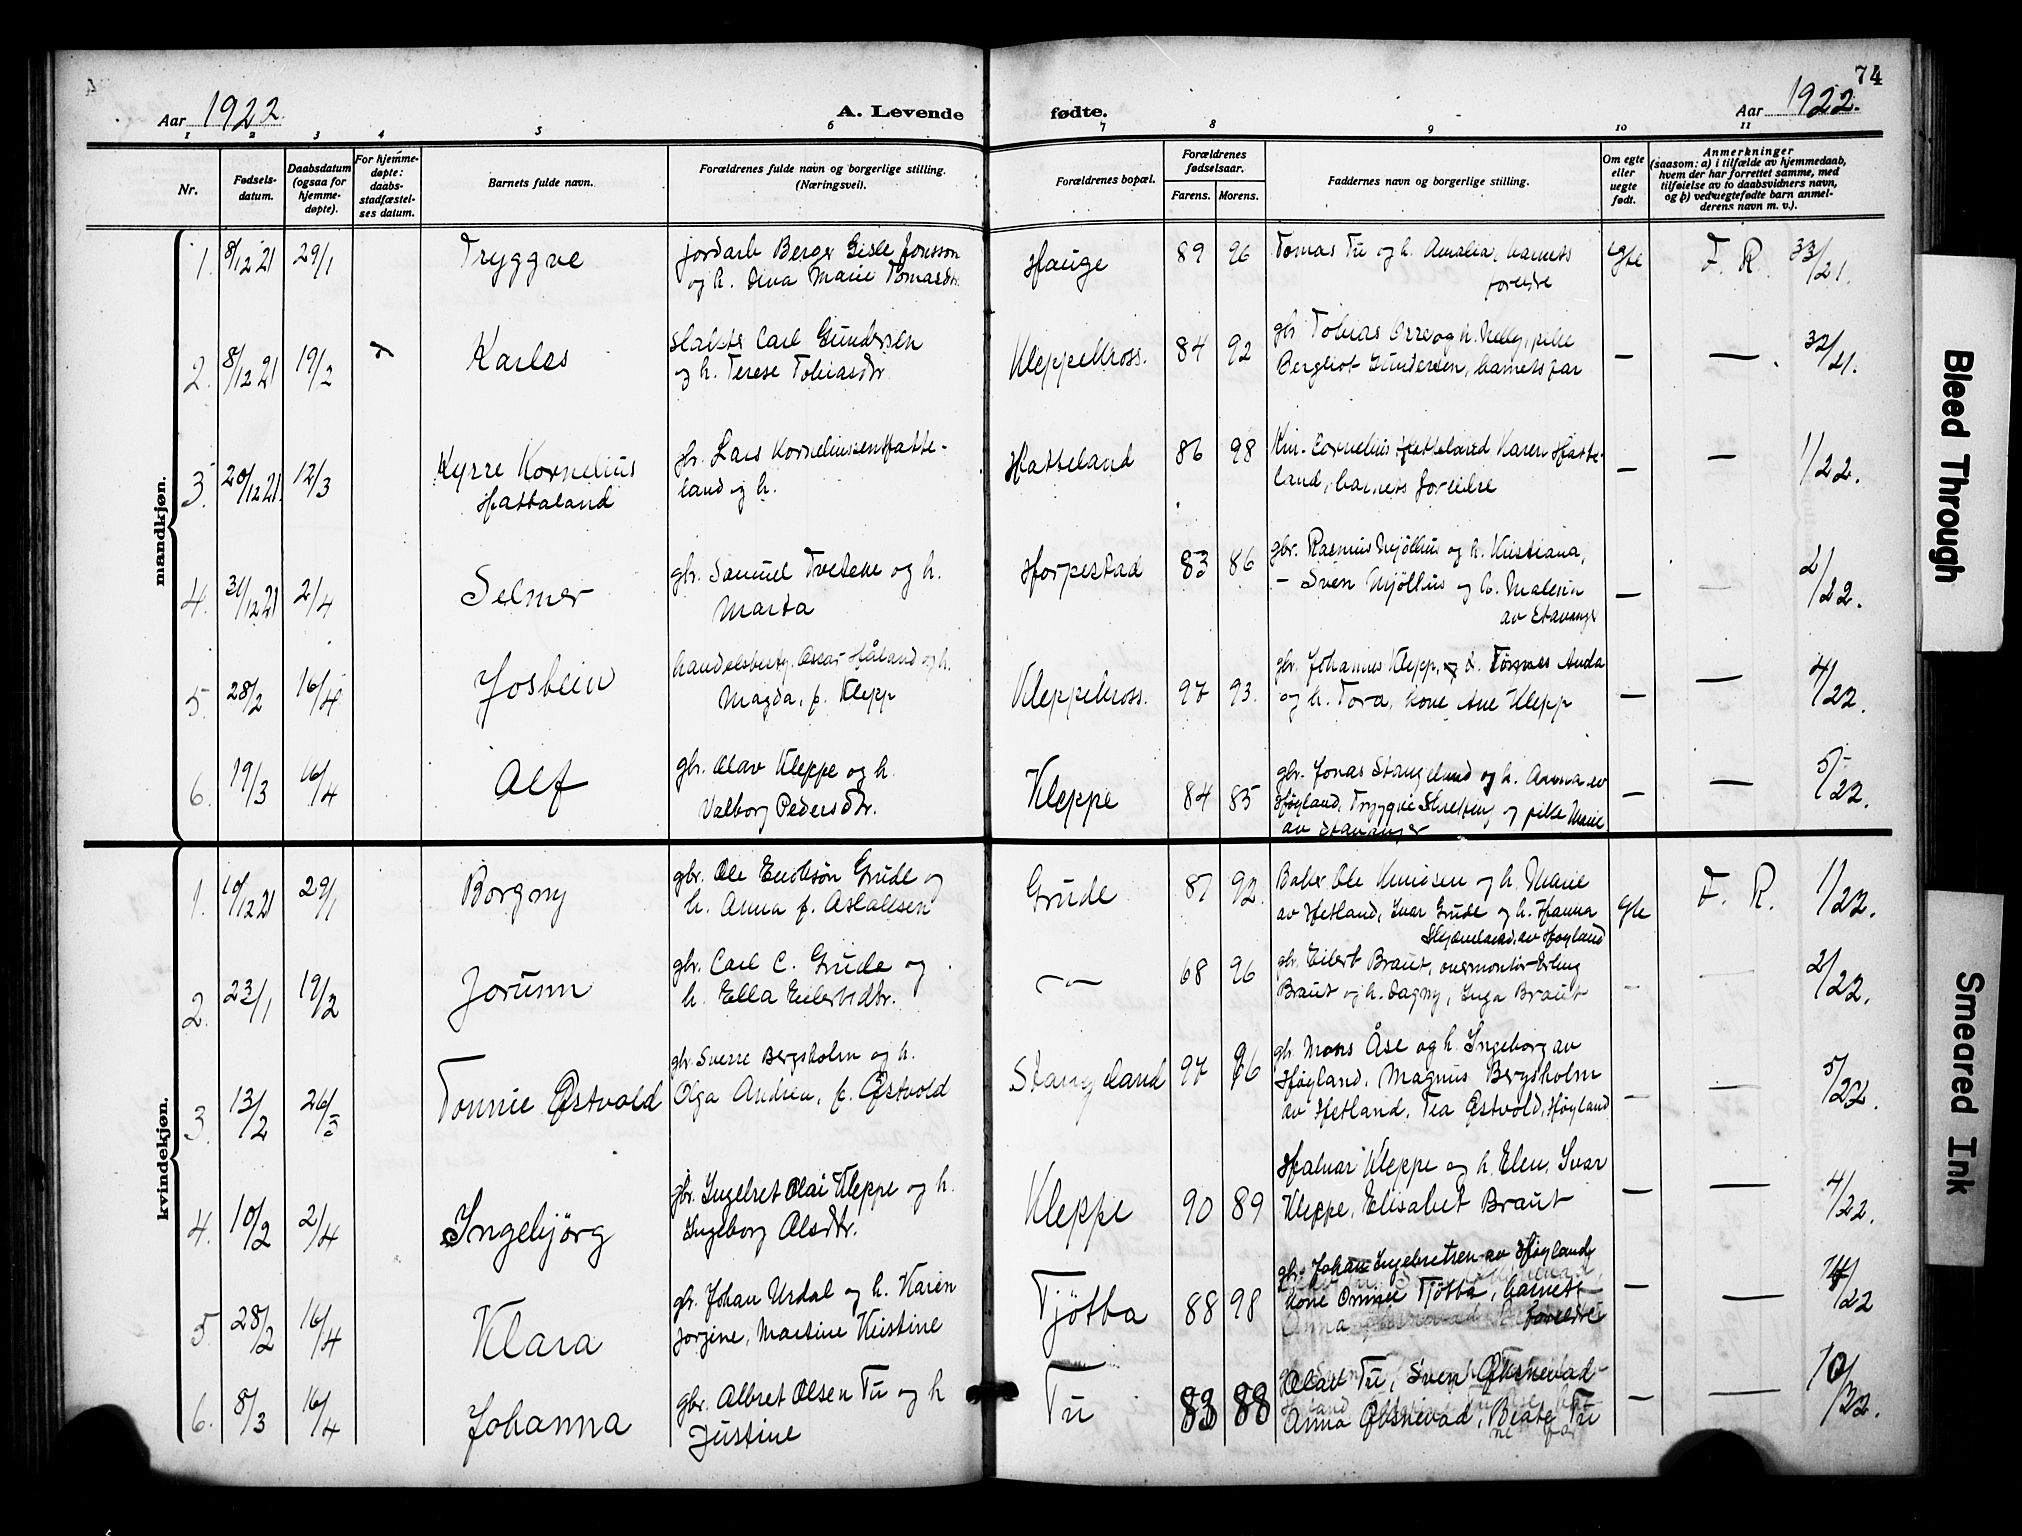 74
Aar 1922.
A. Levende fødte.
Aar 1922.
1 2 3 4 5 6 7 8 9 10 11
Nr.
Fødsels-
datum.
Daabsdatum
(ogsaa for
hjemme-
døpte).
For hjemme-
døpte:
daabs-
stadfæstel-
ses datum.
Barnets fulde navn.
Forældrenes fulde navn og borgerlige stilling.
(Næringsvei).
Forældrenes bopæl.
Forældrenes
fødselsaar.
Farens. Morens.
Faddernes navn og borgerlige stilling.
Om egte
eller
uegte
født.
Anmerkninger
(saasom: a) i tilfælde av hjemmedaab,
hvem der har forrettet samme, med
tilføielse av to daabsvidners navn,
og b) ved uegtefødte barn anmel-
derens navn m. v.).
mandkjøn.
1. 8/12 21 29/1 Tryggve
jordarb Berge Gisle Jonsson
og h. Dina Marie Tomasdtr.
Hauge 89 96
Tomas Tu og h. Amalia, barnets
foreldre
Egte F. R. 33/21.
2. 8/12 21 19/2 Karles
Carl Gundersen
og h. Terese Tobiasdtr.
Kleppekross. 84 92
gbr. Tobias Orre og h. Nelly, pike
Bergliot Gundersen, barnets far
— — 32/21.
3. 20/12 21. 12/3 Kyrre Kornelius
Hattaland
gbr. Lars Korneliussen Hatte-
land og h.
Hatteland 86 98
Cornelius Hatteland Karen Hatte-
land, barnets foreldre
— — 1/22.
4. 31/12 21 2/4 Selmer
gbr. Samuel Tvetene og h.
Marta
Horpestad 83 86
gbr. Rasmus Mjølhus og h. Kristiana,
— Sven Mjølhus og h. Malena
av Stavanger
— — 2/22.
5. 28/2 16/4 Josbein
handelsbesty. Oscar Håland og h.
Magda, f. Klepp
Kleppekross. 97 93.
gbr. Johannes Klepp, Anda
og h. Tora, kone Ane Klepp
— — 4/22.
6. 19/3 16/4 Alf
gbr. Olav Kleppe og h.
Valborg Pedersdtr.
Kleppe 84 85
gbr. Jonas Stangeland og h. Anna av
Høyland, Tryggve og pike Marie
av Stavanger
— — 5/22.
kvindekjøn.
1. 10/12 21 29/1 Borgny
gbr. Ole Grude og
h. Anna f. Aslaksen
Grude 87 92.
Baker Ole Knudsen og h. Marie
av Hetland, Ivar Grude og h. Hanna
Skjæveland, av Høyland
Egte F. R. 1/22.
2. 23/1 19/2 Jorunn
gbr. Carl C. Grude og
h. Ella Eilertsdtr.
—„— 68 96
gbr. Eilert Braut, overmontør Erling
Braut og h. Dagny, Inga Braut
— — 2/22.
3. 13/2 26/3 Tonnie Østvold
gbr. Sverre Bergsholm og h.
Olga Andrea, f. Østvold
Stangeland 97 96
gbr. Mons Åse og h. Ingeborg av
Høyland, Magnus Bergsholm
av Hetland, Tea Østvold, Høyland
— — 5/22.
4. 10/2 2/4 Ingebjörg
gbr. Ingebret Olai Kleppe og h.
Ingeborg Olsdtr.
Kleppe 90 89
Halvar Kleppe og h. Elen, Ivar
Kleppe, Elisabet Braut
— — 4/22.
5 28/2 16/4 Klara
gbr. Johan Urdal og h. Karen
Jorgine, Martine Kristine
Tjøtta 88 98
gbr. Johan Ingebretsen av Høyland
kone Tjøtta, barnets
foreldre
— — /22
6. 8/3 16/4 Johanna
gbr. Albret Olsen Tu og h
Justine
Tu 83 88
Olav Tu, Sven Øksnevad
Anna Øksnevad, Beate Tu
— — 10/22.
Bleed Through
Smeared Ink